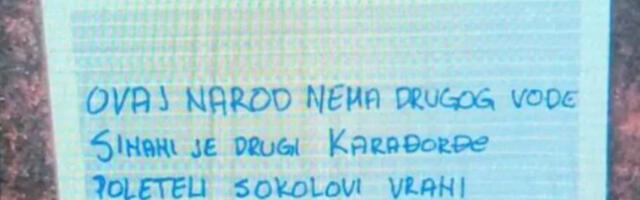 OVAJ NAROD NEMA DRUGOG VOĐE
SINANI JE DRUGI KARAĐORĐE
POLETELI SOKOLOVI VRANI